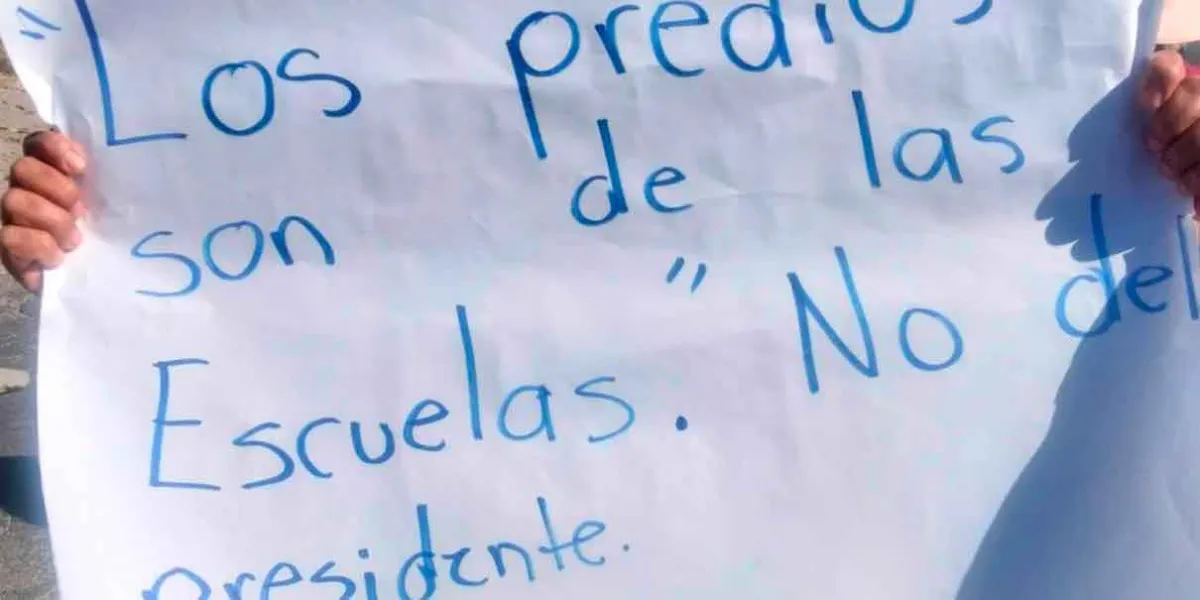 "Los predios
son de las
Escuelas." No del
presidente.